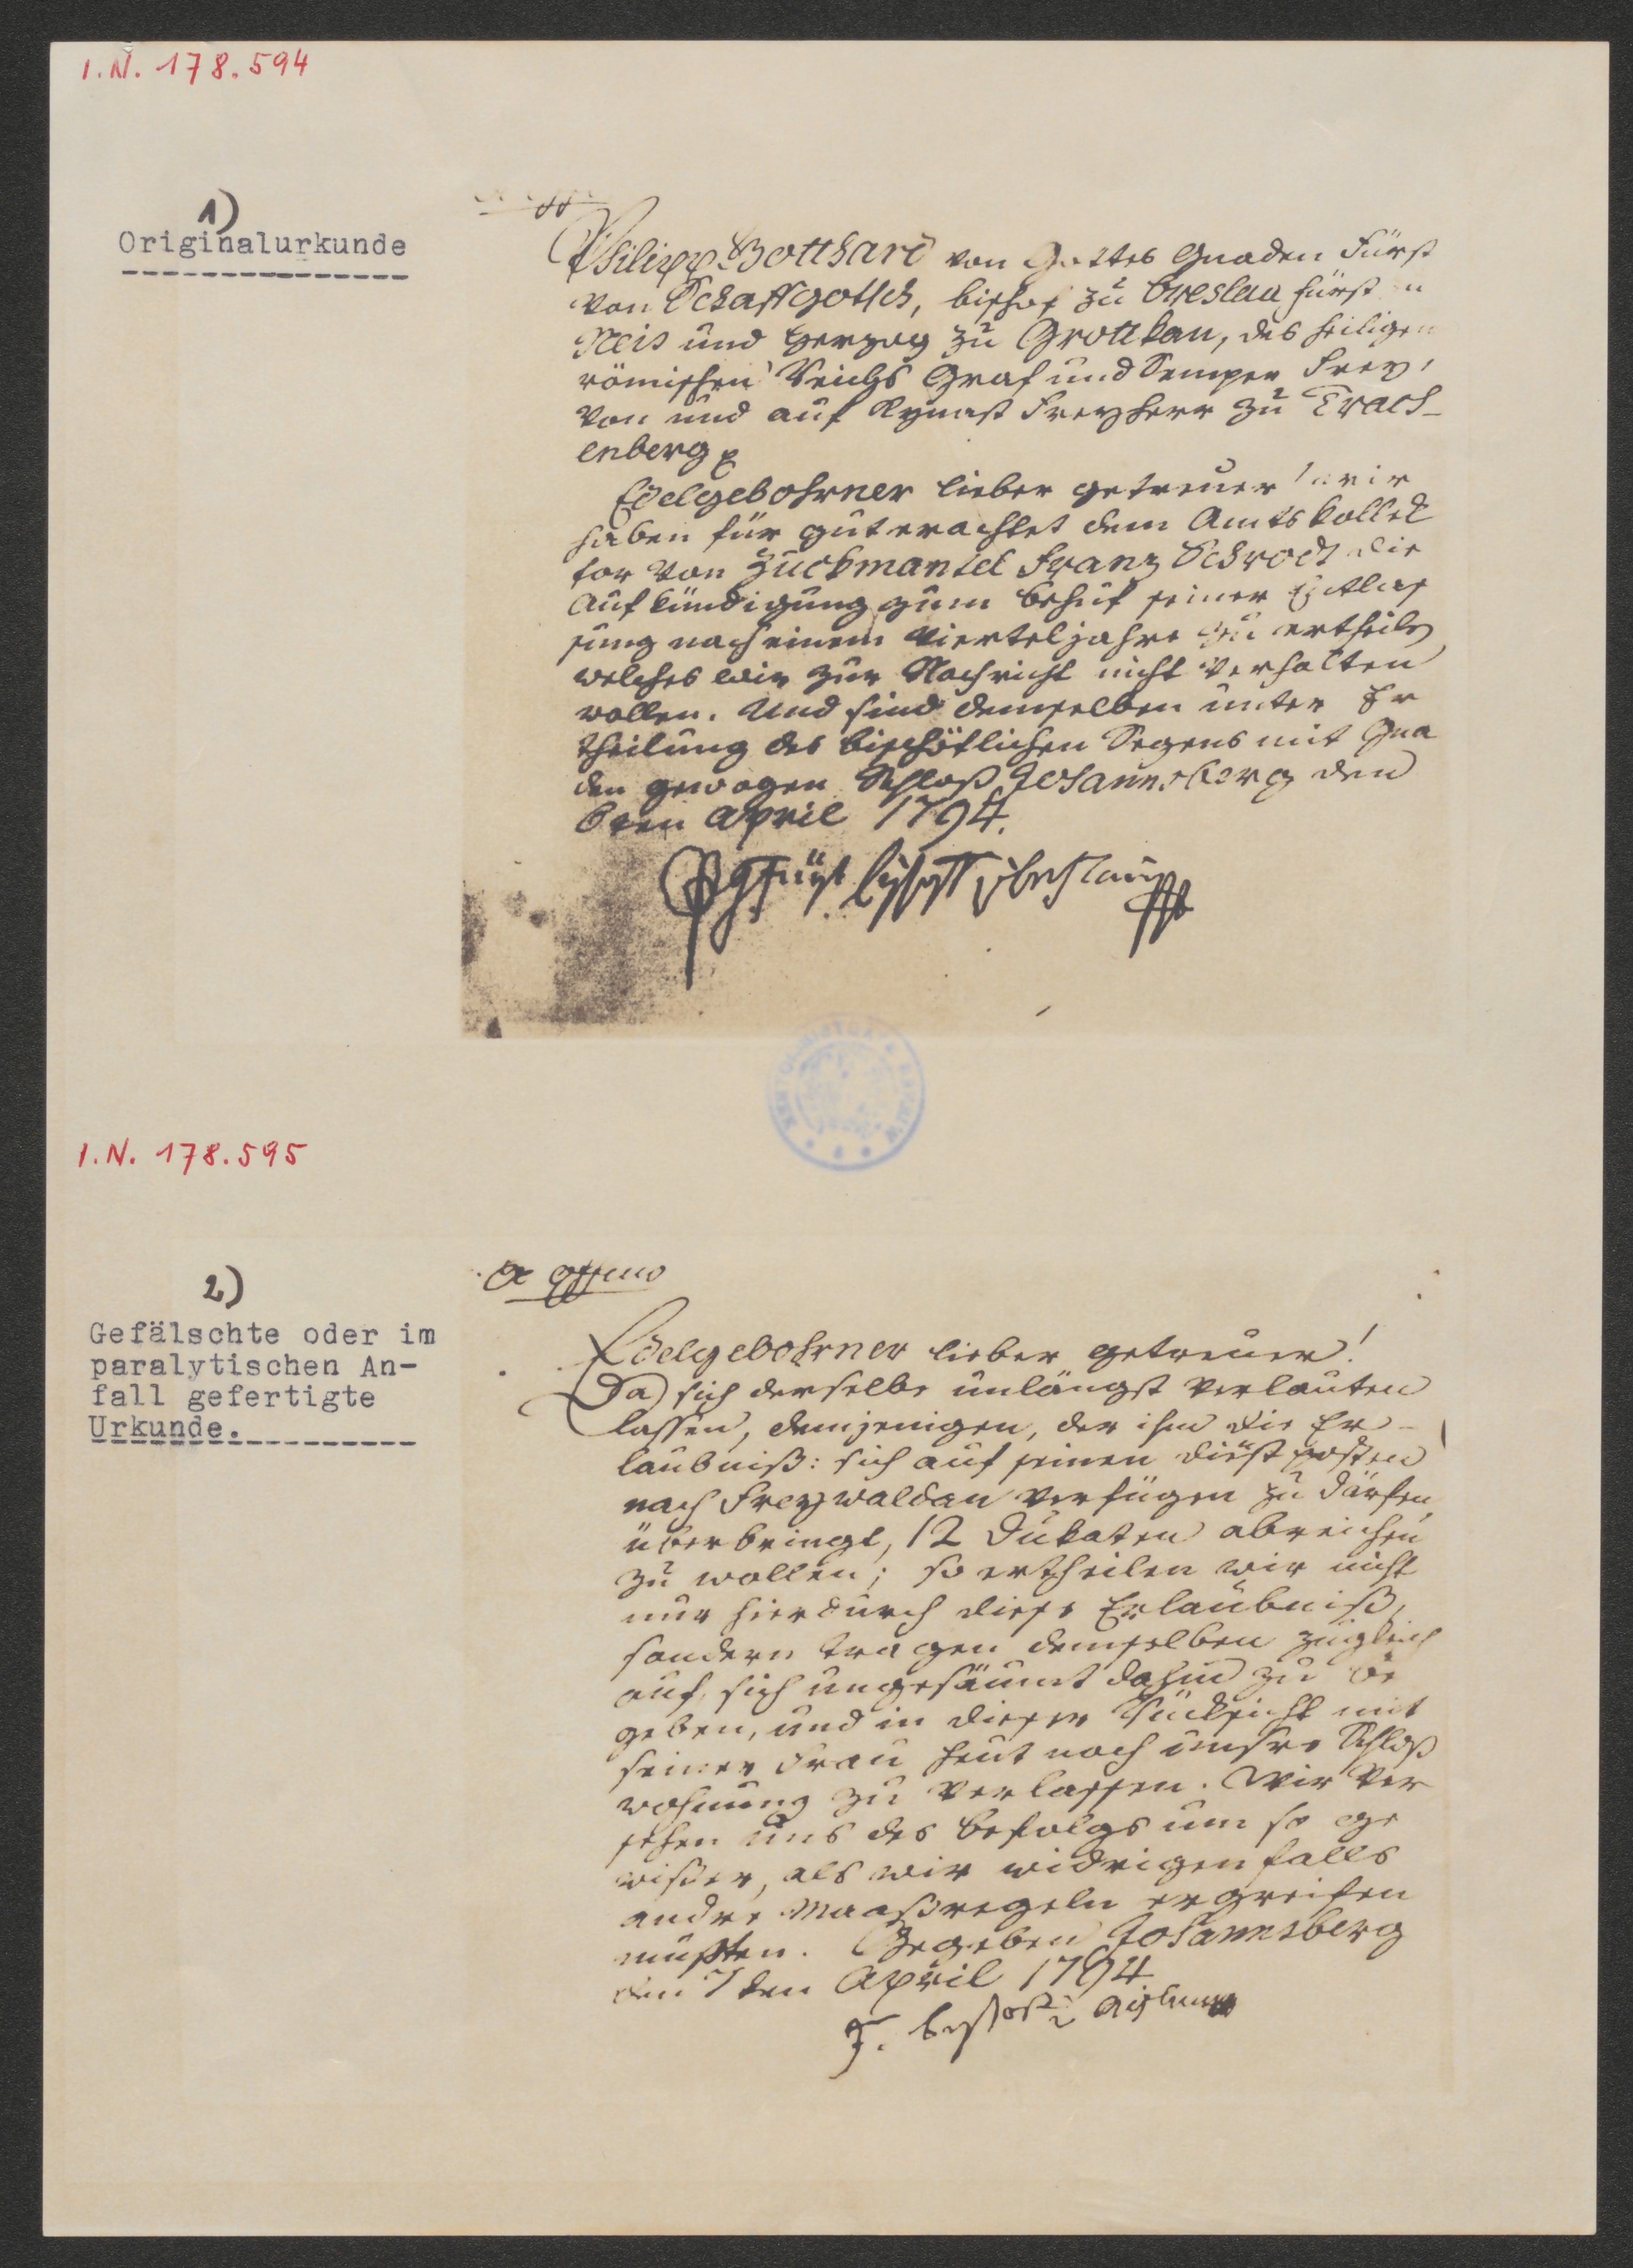 I.N. 178.594
1)
Originalurkunde
Philipp Gotthard von Gottes Gnaden Fürst
von Schaffgotsch, bischof zu Breslau fürst
Neis und Herzog zu Grottkau, des heiligen
römischen Reichs Graf und Semper Frey,
von und auf Kynast Freyherr zu Trach-
enberg
Edelgebohrner lieber getreuer! wir
haben für gut erachtet dem Amts kollek
tor von Zuckmantel Franz Schrodt die
aufkündigung zum behuf seiner Entlas
sung nach einem vierteljahre zu ertheilen
welches wir zur Nachricht nicht verhalten
wollen. Und sind demselben unter Er
theilung des bischöflichen Segens mit Gna
den gewogen Schloß Johannesberg den
6ten April 1794.
I.N. 178.595
2)
Gefälschte oder im
paralytischen An-
fall gefertigte
Urkunde.
Edelgebohrner lieber getreuer!
Da sich derselbe unlängst verlauten
lassen, demjenigen, der ihm die Er-
laubniß: sich auf seinen dienstposten
nach Freywaldau verfügen zu därfen
überbringt, 12 Dukaten abreichen
zu wollen; so ertheilen wir nicht
nur hierdurch diese Erlaubniß,
sondern tragen demselben zugleich
auf, sich ungesäumt dahin zu be
geben, und in dieser Rücksicht mit
seiner Frau heut noch unsre Schloß
wohnung zu verlassen. Wir ver
sehen uns des befolgs um so ge
wißer, als wir widrigenfalls
andre Maaßregeln ergreifen
müßten. Gegeben Johannesberg
den 7ten April 1794